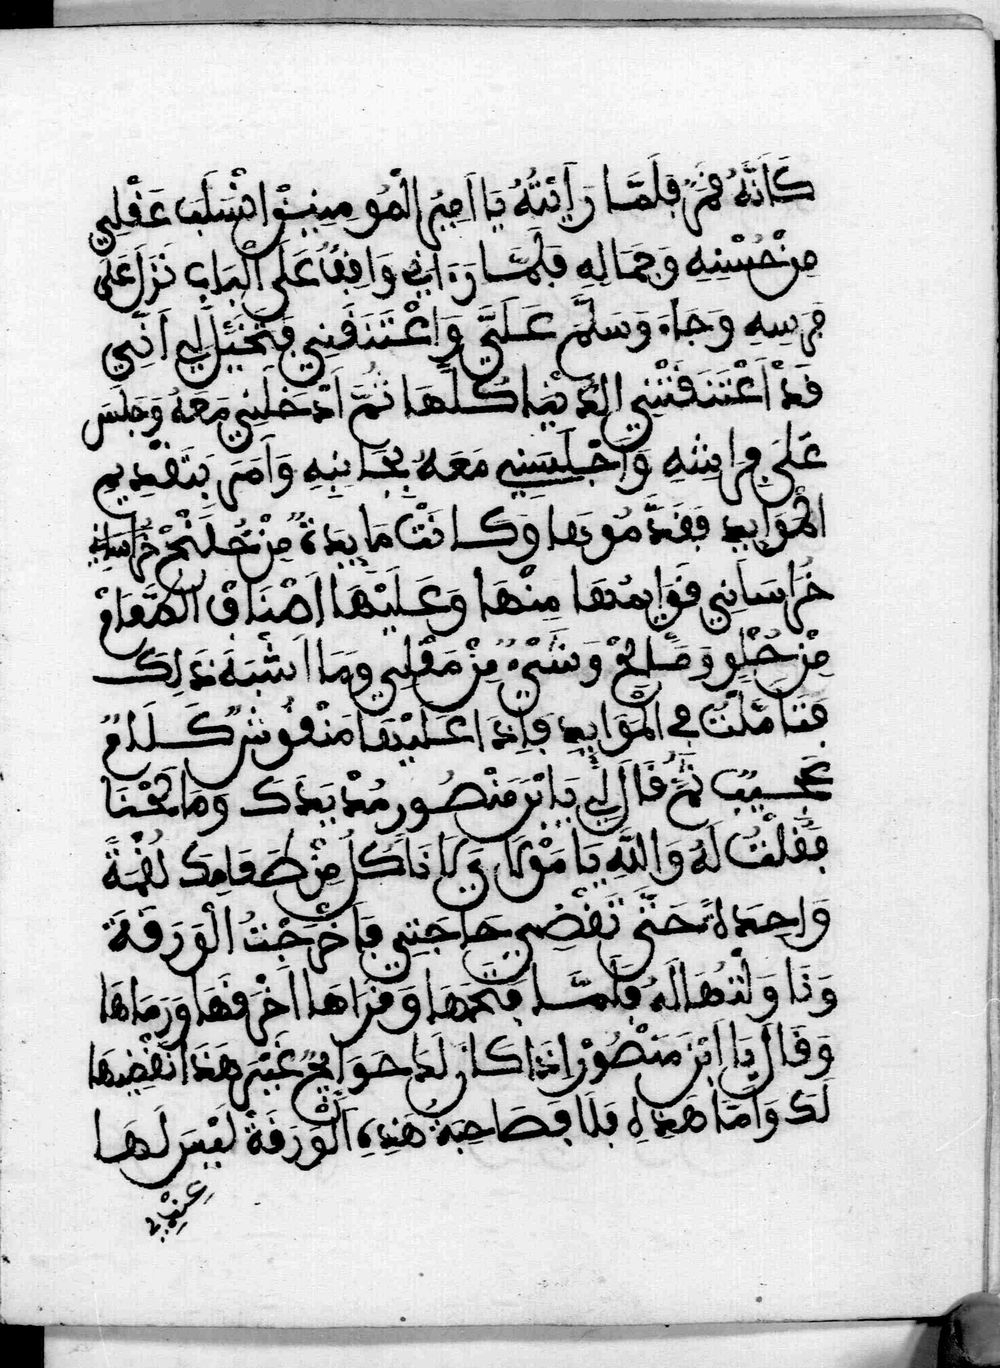 كَأَنَّهُ قَمَرٌ فَلَمَّا رَأَيْتُهُ يَا أَمِيرَ الْمُومِنِينَ انْسَلَبَ عَقْلِي
مِنْ حُسْنِهِ وَجَمَالِهِ فَلَمَّا رَءَانِي وَاقِفًا عَلَى الْبَابِ نَزَلَ عَلَى
فَرَسِهِ وَجَاءَ وَسَلَّمَ عَلَيَّ وَاعْتَنَقَنِي فَتَخَيَّلَ لِي أَنِّي
قَدْ اَعْتَنَقَتْنِي الدُّنْيَا كُلُّهَا ثُمَّ اَدْخَلَنِي مَعَهُ وَجَلَسَ
عَلَى فِرَاشِهِ وَاَجْلَسَنِي مَعَهُ بِجَانِبِهِ وَاَمَرَ بِتَقْدِيمِ
الْمَوَايِدِ فَقَدَّمُوهَا وَكَانَتْ مَايِدَةً مِنْ خَلَنْجٍ خُرَاسَانِي
خُرَاسَانِي قَوَايِمُهَا مِنْهَا وَعَلَيْهَا اَصْنَافُ الطَّعَامِ
مِنْ حُلْوٍ وَمَالِحٍ وَشَيْءٍ مِنْ مَقْلِي وَمَا اَشْبَهَ ذَلِكَ
فَتَأَمَّلْتُ فِي الْمَوَايِدِ فَإِذَا عَلَيْهَا مَنْقُوشٌ كَلَامٌ
عَجِيبٌ ثُمَّ قَالَ لِي يَا ابْنَ مَنْصُورٍ مُدْ يَدَكَ وَمَالِحْنَا
فَقُلْتُ لَهُ وَاللَّهِ يَا مَوْلَايَ لَا نَاكُلُ مِنْ طَعَامِكَ لُقْمَةً
وَاحِدَةً حَتَّى تَقْضِي حَاجَتِي فَأَخْرَجْتُ الْوَرَقَةَ
وَنَاوَلْتُهَا لَهُ فَلَمَّا فَتَحَهَا وَقَرَاهَا اَخْرَقَهَا وَرَمَاهَا
وَقَالَ يَا ابْنَ مَنْصُورٍ اِذَا كَانَ لَكَ حَوَايِجٌ غَيْرَ هَذَا نَقْضِيهَا
لَكَ وَاَمَّا هَذِهِ فَلَا فَصَاحِبَةُ هَذِهِ الْوَرَقَةُ لَيْسَ لَهَا
عِنْدِي